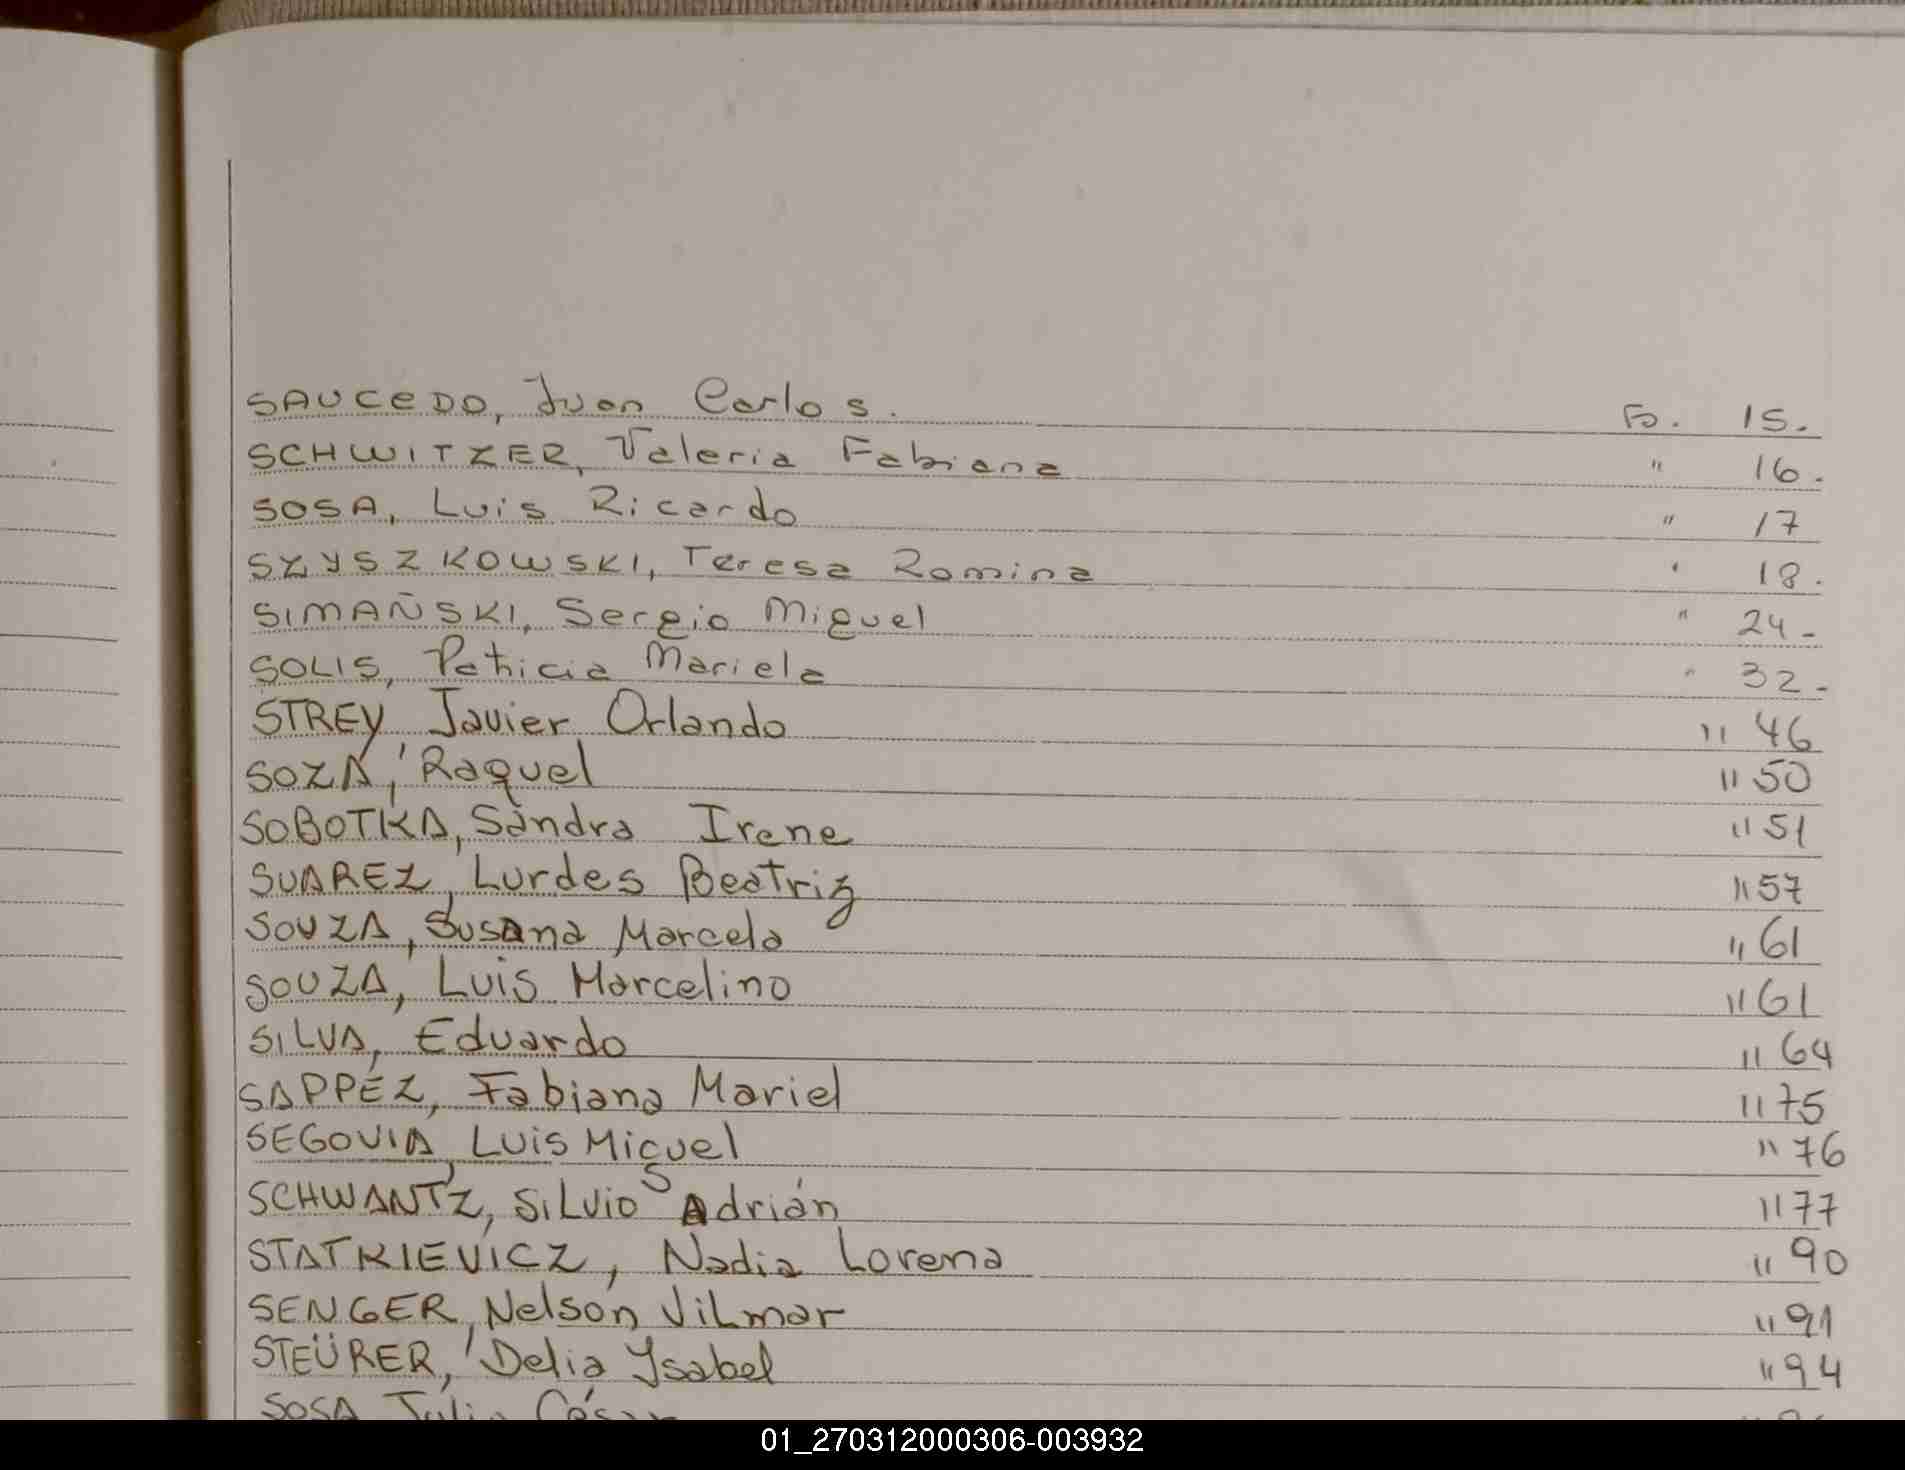 SAUCEDO, Juan Carlos. Fo. 15.
SCHWITZER, Valeria Fabiana " 16.
SOSA, Luis Ricardo " 17
SZYSZKOWSKI, Teresa Romina " 18.
SIMAÑSKI, Sergio Miguel " 24-
SOLIS, Patricia Mariela " 32-
STREY, Javier Orlando " 46
SOZA, Raquel " 50
SOBOTKA, Sandra Irene " 51
SUAREZ, Lurdes Beatriz " 57
SOUZA, Susana Marcela " 61
SOUZA, Luis Marcelino " 61
SILVA, Eduardo " 64
SAPPÉZ, Fabiana Mariel " 75
SEGOVIA, Luis Miguel " 76
SCHWANTZ, Silvio Adrián " 77
STATKIEVICZ, Nadia Lorena " 90
SENGER, Nelson Vilmar " 91
STEÜRER, Delia Ysabel " 94
SOSA Julio César
01_270312000306-003932